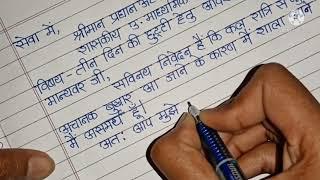 सेवा में,
श्रीमान प्रधान
शासकीय उ. माध्यमिक
विषय- तीन दिन की छुट्टी हेतु
मान्यवर जी,
सविनय निवेदन है कि कल रात्रि से
अचानक बुखार आ जाने के कारण मैं शाला
में असमर्थ हूँ।
अतः आप मुझे